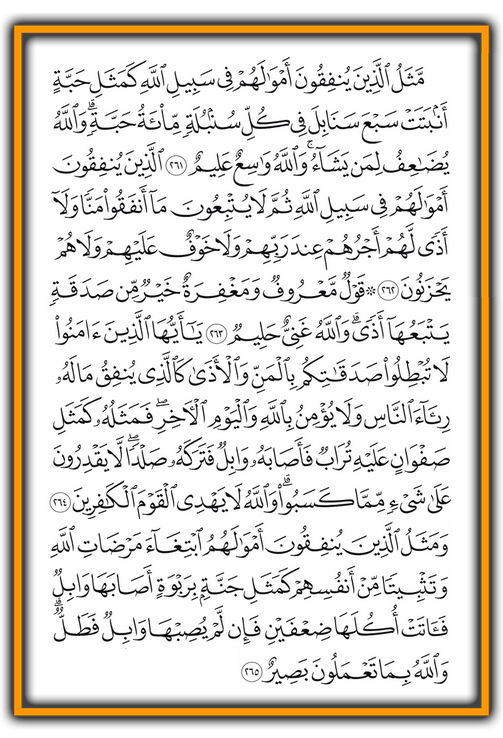 مَّثَلُ ٱلَّذِينَ يُنفِقُونَ أَمْوَٰلَهُمْ فِى سَبِيلِ ٱللَّهِ كَمَثَلِ حَبَّةٍ
أَنۢبَتَتْ سَبْعَ سَنَابِلَ فِى كُلِّ سُنۢبُلَةٍ مِّا۟ئَةُ حَبَّةٍ ۗ وَٱللَّهُ
يُضَٰعِفُ لِمَن يَشَآءُ ۚ وَٱللَّهُ وَٰسِعٌ عَلِيمٌ ٢٦١ ٱلَّذِينَ يُنفِقُونَ
أَمْوَٰلَهُمْ فِى سَبِيلِ ٱللَّهِ ثُمَّ لَا يُتْبِعُونَ مَآ أَنفَقُوا۟ مَنًّا وَلَآ
أَذًى لَّهُمْ أَجْرُهُمْ عِندَ رَبِّهِمْ وَلَا خَوْفٌ عَلَيْهِمْ وَلَا هُمْ
يَحْزَنُونَ ٢٦٢ ۞ قَوْلٌ مَّعْرُوفٌ وَمَغْفِرَةٌ خَيْرٌ مِّن صَدَقَةٍ
يَتْبَعُهَآ أَذًى ۗ وَٱللَّهُ غَنِىٌّ حَلِيمٌ ٢٦٣ يَٰٓأَيُّهَا ٱلَّذِينَ ءَامَنُوا۟
لَا تُبْطِلُوا۟ صَدَقَٰتِكُم بِٱلْمَنِّ وَٱلْأَذَىٰ كَٱلَّذِى يُنفِقُ مَالَهُۥ
رِئَآءَ ٱلنَّاسِ وَلَا يُؤْمِنُ بِٱللَّهِ وَٱلْيَوْمِ ٱلْءَاخِرِ ۖ فَمَثَلُهُۥ كَمَثَلِ
صَفْوَانٍ عَلَيْهِ تُرَابٌ فَأَصَابَهُۥ وَابِلٌ فَتَرَكَهُۥ صَلْدًا ۖ لَّا يَقْدِرُونَ
عَلَىٰ شَىْءٍ مِّمَّا كَسَبُوا۟ ۗ وَٱللَّهُ لَا يَهْدِى ٱلْقَوْمَ ٱلْكَٰفِرِينَ ٢٦٤
وَمَثَلُ ٱلَّذِينَ يُنفِقُونَ أَمْوَٰلَهُمُ ٱبْتِغَآءَ مَرْضَاتِ ٱللَّهِ
وَتَثْبِيتًا مِّنْ أَنفُسِهِمْ كَمَثَلِ جَنَّةٍۭ بِرَبْوَةٍ أَصَابَهَا وَابِلٌ
فَـَٔاتَتْ أُكُلَهَا ضِعْفَيْنِ فَإِن لَّمْ يُصِبْهَا وَابِلٌ فَطَلٌّ ۗ
وَٱللَّهُ بِمَا تَعْمَلُونَ بَصِيرٌ ٢٦٥